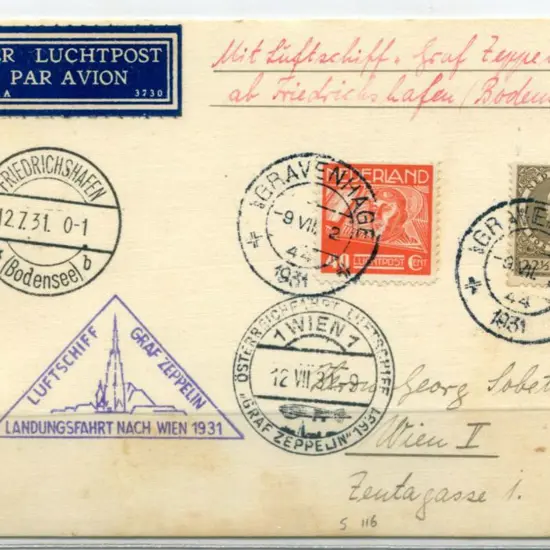 ER LUCHTPOST
PAR AVION
A 3730
Mit Luftschiff „Graf Zeppe
ab Friedrichshafen (Boden
FRIEDRICHSHAFEN
12.7.31. 0-1
(Bodensee) b
'SGRAVENHAGE
-9 VII 2
44
1931
ERLAND
40 CENT
LUCHTPOST
'SGRAVE
-9 VII
44
1931
LUFTSCHIFF GRAF ZEPPELIN
LANDUNGSFAHRT NACH WIEN 1931
ÖSTERREICHFAHRT LUFTSCHIFF
1 WIEN 1
12 VII 31 -9
„GRAF ZEPPELIN" 1931
Herrn Georg Sobet
Wien II
Zentagasse 1.
S 116